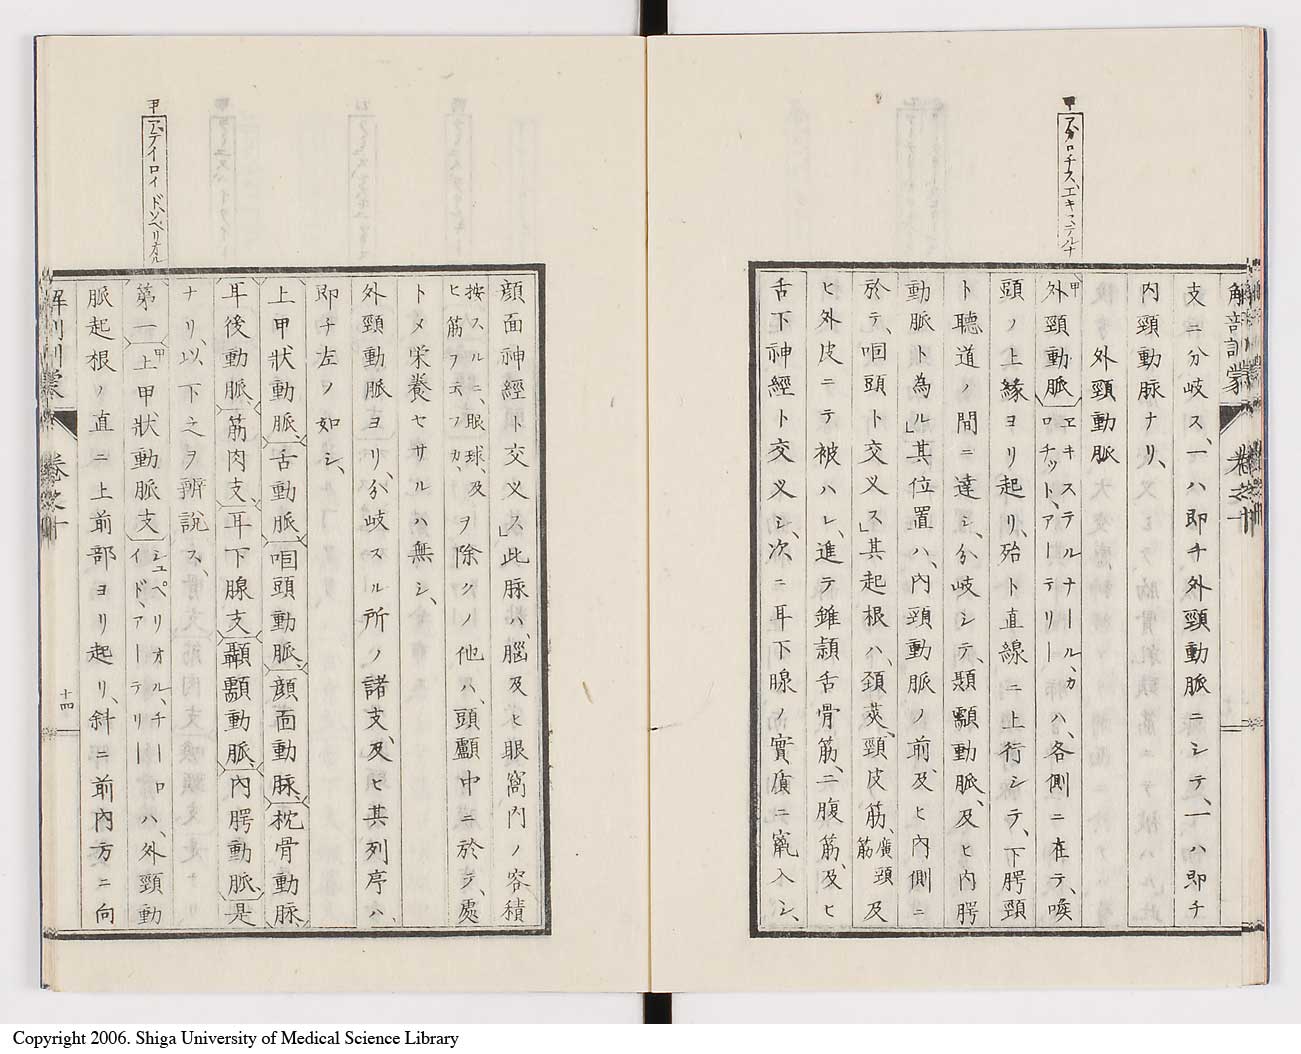 解剖訓蒙 卷之十
甲
ア、カロチス、エキステルナ
支ニ分岐ス、一ハ即チ外頸動脈ニシテ、一ハ即チ
内頸動脉ナリ、
外頸動脈
甲外頸動脈 エキステルナール、カロチット、アーテリー ハ、各側ニ在テ、喉
頭ノ上緣ヨリ起リ、殆ト直線ニ上行シテ、下腭頸
ト聽道ノ間ニ達シ、分岐シテ、顳顬動脈、及ヒ内腭
動脈ト為ル」其位置ハ、内頸動脈ノ前及ヒ内側ニ
於テ、咽頭ト交叉ス」其起根ハ、頚莢、頸皮筋、廣頸筋及
ヒ外皮ニテ被ハレ、進テ錐頷舌骨筋、二腹筋、及ヒ
舌下神經ト交叉シ、次ニ耳下腺ノ實質ニ竄入シ、
顔面神經ト交叉ス」此脉ハ、腦及ヒ眼窩内ノ容積
按スルニ、眼球、及ヒ筋ヲ云フカ、ヲ除クノ他ハ、頭顱中ニ於テ、處
トメ栄養セサルハ無シ、
外頸動脈ヨリ、分岐スル所ノ諸支、及ヒ其列序ハ、
即チ左ノ如シ、
上甲狀動脈、舌動脈、咽頭動脈、顔面動脉、枕骨動脉、
耳後動脈、筋肉支、耳下腺支、顳顬動脈、内腭動脈、是
ナリ、以下之ヲ辨説ス、
甲
ア、テイロイドソペリオル
第一 甲上甲狀動脈支 シュペリオル、チーロイド、アーテリー ハ、外頸動
脈起根ノ直ニ上前部ヨリ起リ、斜ニ前内方ニ向
解剖訓蒙 卷之十 十四